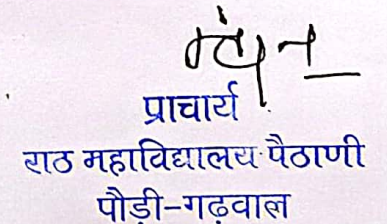 प्राचार्य
राठ महाविद्यालय पैठाणी
पौड़ी-गढ़वाल